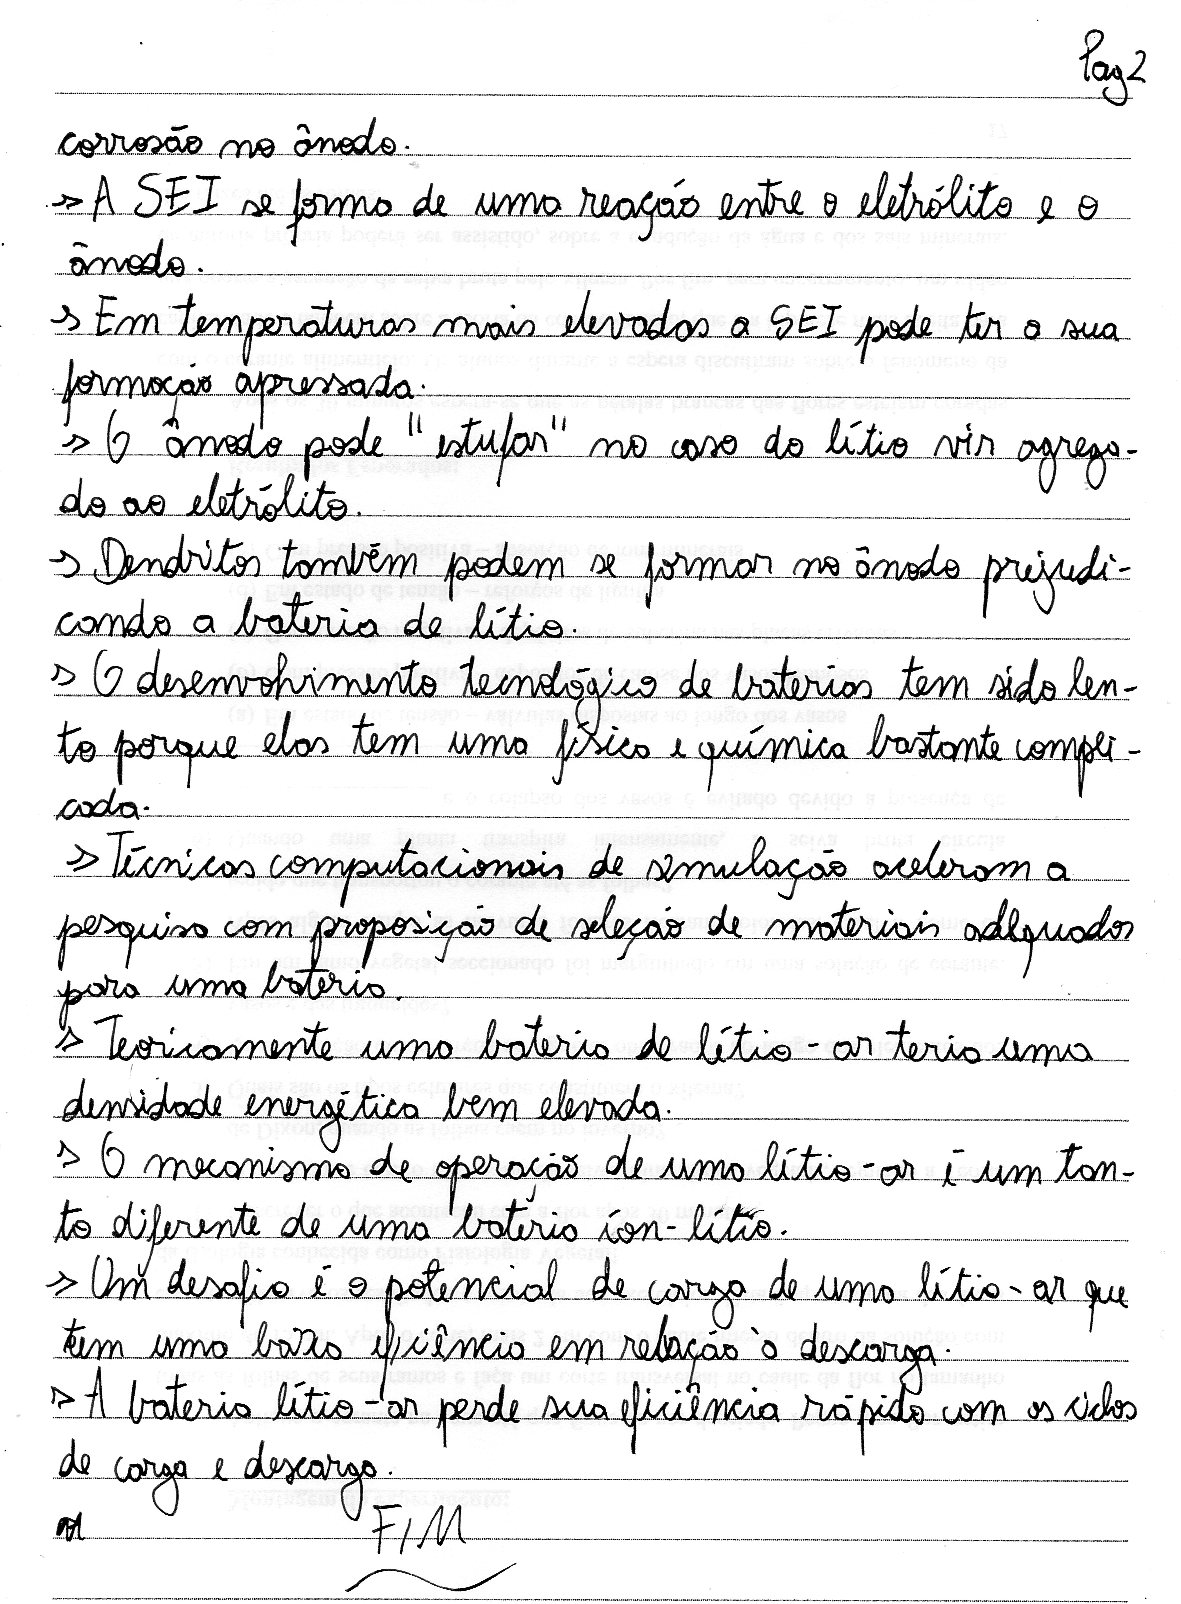 Pag 2
corrosão no ânodo.
-> A SEI se forma de uma reação entre o eletrólito e o
ânodo.
-> Em temperaturas mais elevadas a SEI pode ter a sua
formação apressada.
-> O ânodo pode "estufar" no caso do lítio vir agrega-
do ao eletrólito.
-> Dendritos também podem se formar no ânodo prejudi-
cando a bateria de lítio.
-> O desenvolvimento tecnológico de baterias tem sido len-
to porque elas tem uma física e química bastante compli-
cada.
-> Técnicas computacionais de simulação aceleram a
pesquisa com proposição de seleção de materiais adequados
para uma bateria.
-> Teoricamente uma bateria de lítio-ar teria uma
densidade energética bem elevada.
-> O mecanismo de operação de uma lítio-ar é um tan-
to diferente de uma bateria íon-lítio.
-> Um desafio é o potencial de carga de uma lítio-ar que
tem uma baixa eficiência em relação à descarga.
-> A bateria lítio-ar perde sua eficiência rápido com os ciclos
de carga e descarga.
FIM